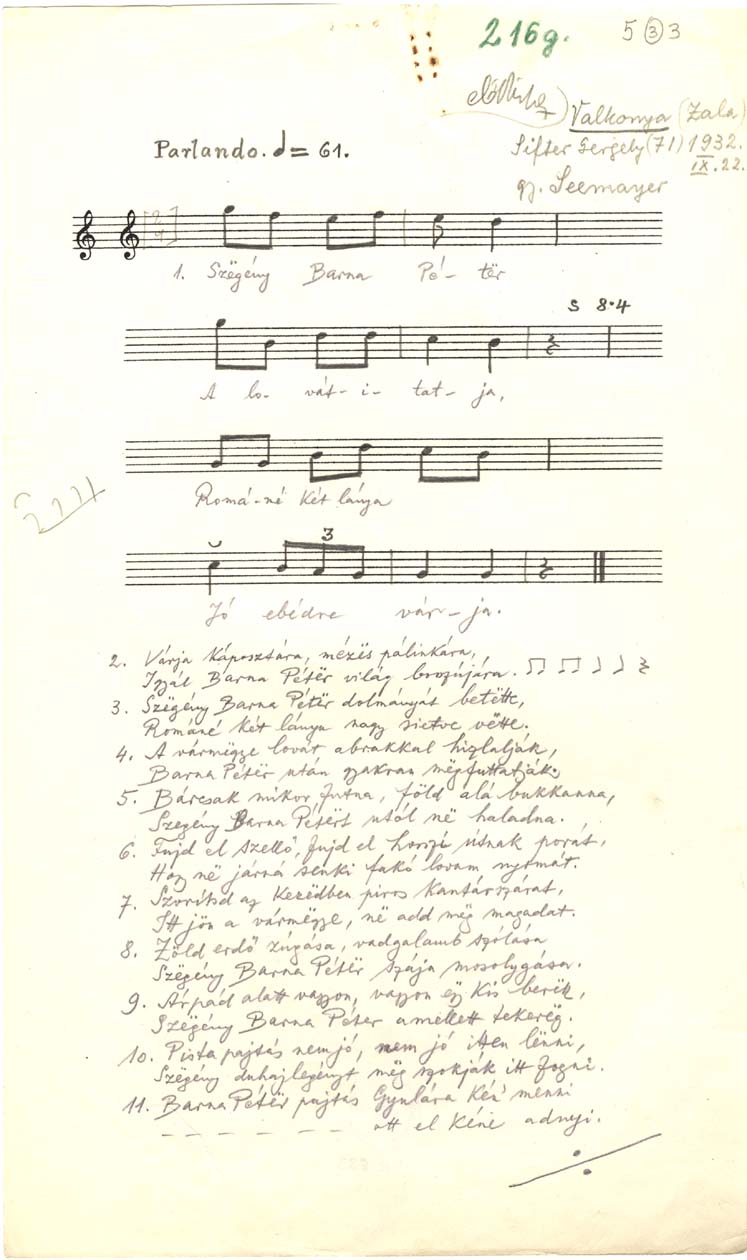 216g.
5 3 3
Valkonya (Zala)
Sifter Gergely (71) 1932.
IX. 22.
gy. Seemayer
Parlando. = 61.
1. Szëgény Barna Pé-tër
S 8.4
A lo-vát-i-tat-ja,
Romá-né két lánya
3
Jó ebédre vár-ja.
2. Várja káposztára, mézës pálinkára,
Igyál Barna Pétër világ bozújára.
3. Szëgény Barna Pétër dolmányát betëtte,
Románé két lánya nagy sietve vëtte.
4. A vármëgye lovát abrakkal hizlalják,
Barna Pétër után gyakran mëgfuttatják.
5. Bárcsak mikor futna, föld alá bukkanna,
Szëgény Barna Pétërt utól në haladna.
6. Fujd el szellő, fujd el hosszi útnak porát,
Hogy në járná senki fakó lovam nyomát.
7. Szorítsd az kezedben piros kantárszárat,
Itt jön a vármëgye, në add mëg magadat.
8. Zöld erdő zúgása, vadgalamb szólása
Szëgény Barna Pétër szája mosolygása.
9. Árpád alatt vagyon, vagyon ëgy kis berëk,
Szëgény Barna Péter amellett tekerëg.
10. Pista pajtás nem jó, nem jó itten lënni,
Szëgény duhajlegényt mëg szokják itt fogni.
11. Barna Pétër pajtás Gyulára kén menni
_ _ _ _ _ _ ott el kéne adnyi.